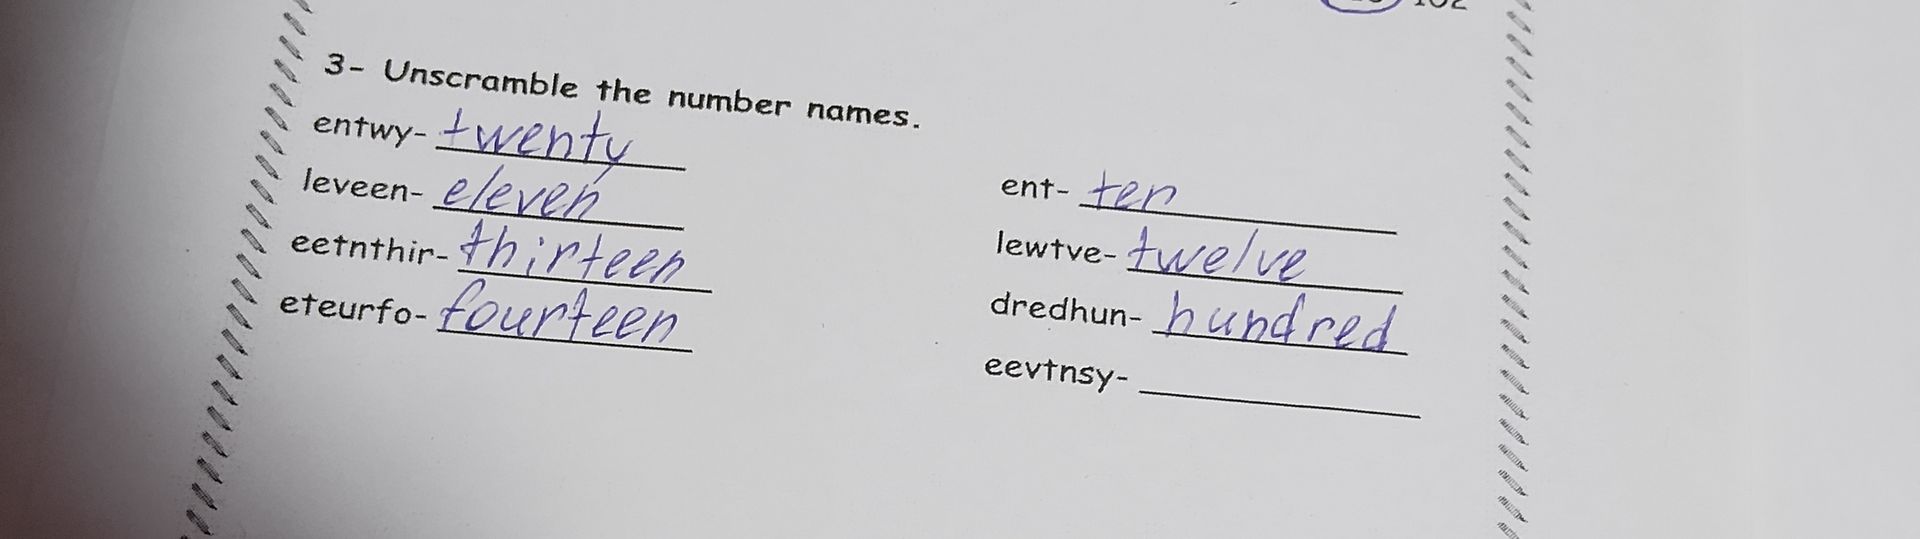 102
3- Unscramble the number names.
entwy- twenty
leveen- eleven
eetnthir- thirteen
eteurfo- fourteen
ent- ten
lewtve- twelve
dredhun- hundred
eevtnsy-